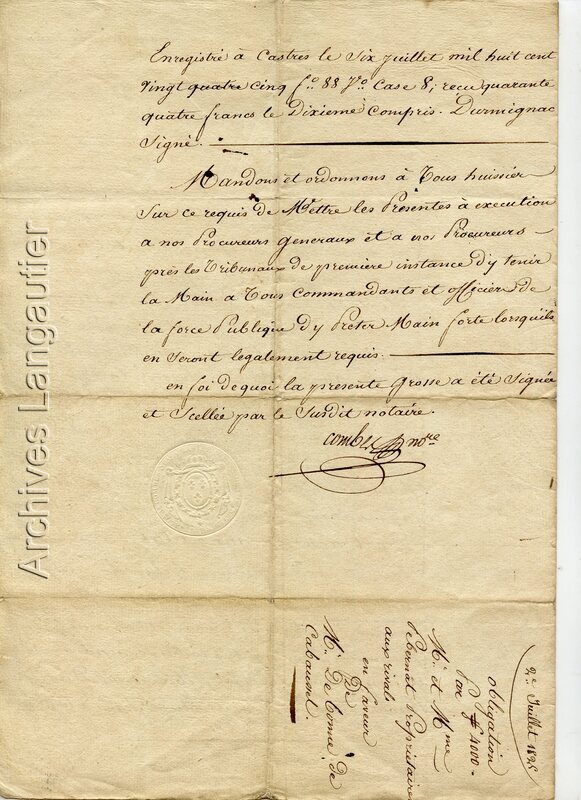 Enregistré à Castres le Six juillet mil huit cent
vingt quatre cinq f.° 88 V.° Case 8; reçu quarante
quatre francs le Dixieme Compris. Durmignac
Signé.
Mandons et ordonnons à Tous huissier
Sur ce requis de Mettre les Présentes à exécution
a nos Procureurs generaux et a nos Procureurs
près les Tribunaux de première instance d'y tenir
la Main a Tous Commandants et officiers de
la force Publique d'y Preter Main forte lorsquils
en Seront legalement requis.
en foi de quoi la presente Grosse a été Signée
et Scellée par le Susdit notaire.
combes nore
2e Juillet 1825
obligation
Par 4000.
M. et Mme
Pebernat Propriétaire
aux rivals
en faveur
De
M. De Comte de
Cabausel.
Archives Langautier